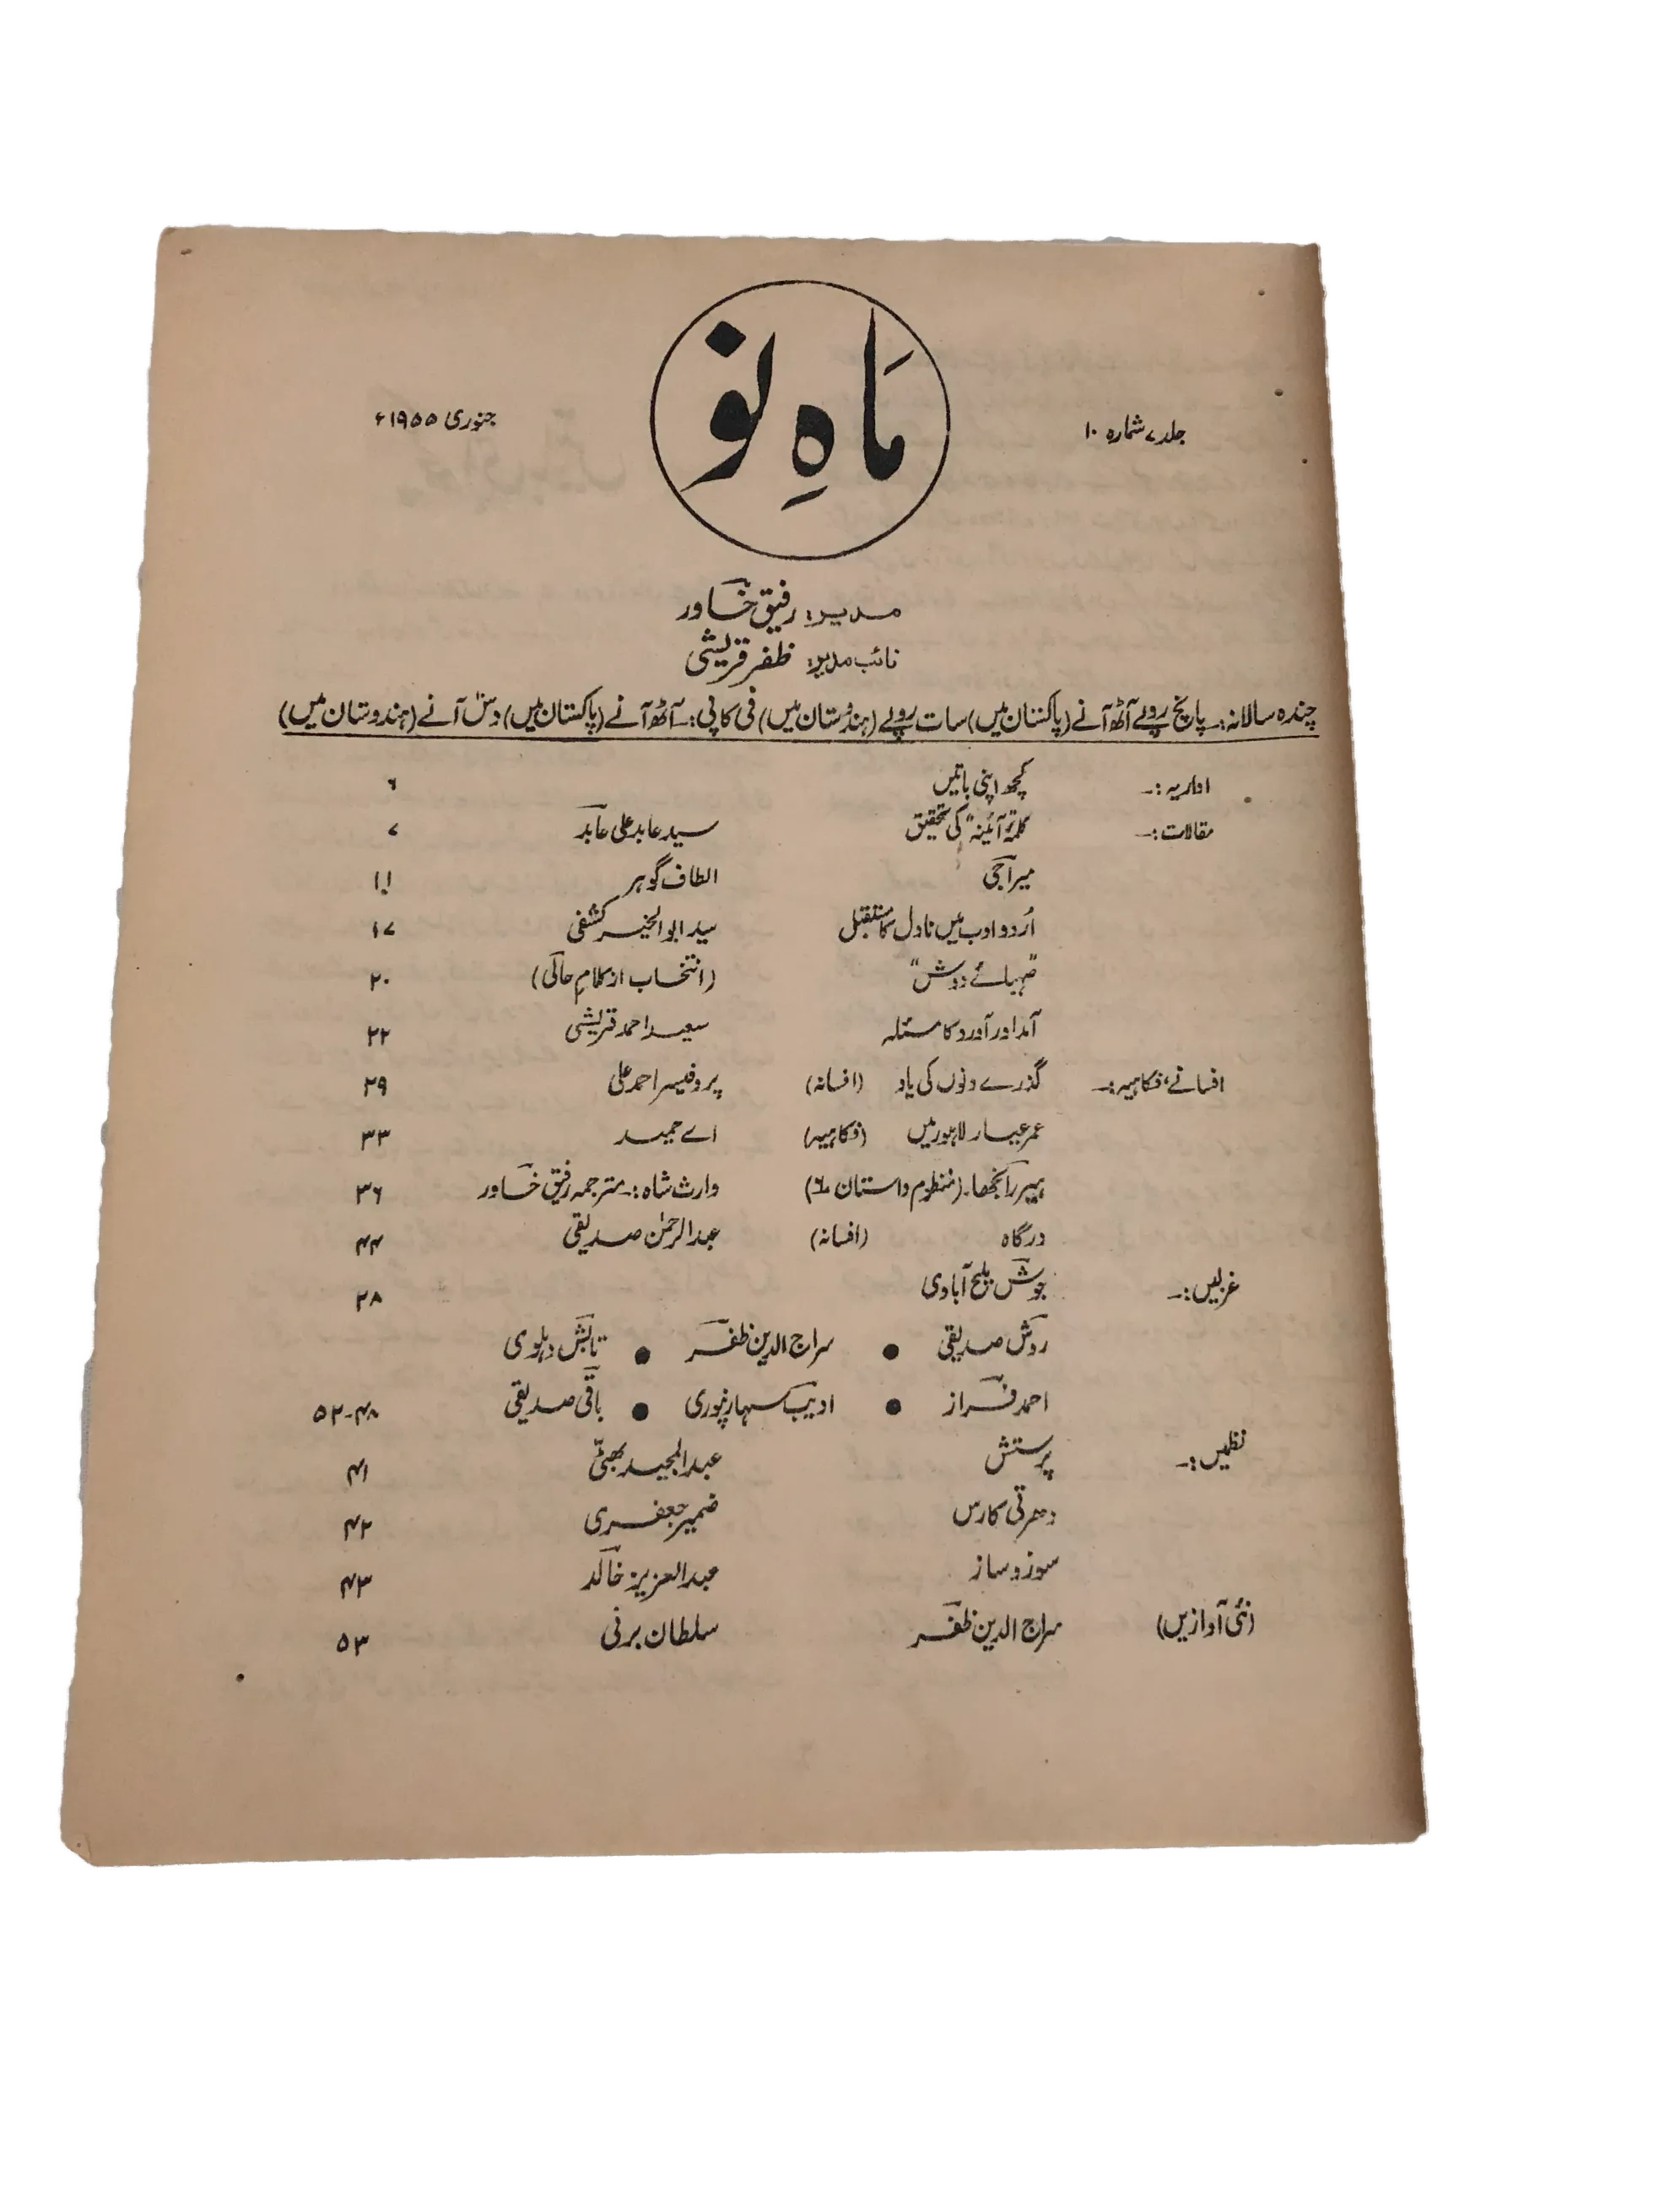 جلد ۷ شمارہ ۱۰
مَاہِ نو
جنوری ۱۹۵۵ء
مدیر: رفیق خاور
نائب مدیر: ظفر قریشی
چندہ سالانہ:۔ پانچ روپے آٹھ آنے (پاکستان میں) سات روپے (ہندوستان میں) فی کاپی:۔ آٹھ آنے (پاکستان میں) دس آنے (ہندوستان میں)
اداریہ:۔ کچھ اپنی باتیں ۶
مقالات:۔ کلمۂ "آئینہ" کی تحقیق سید عابد علی عابد ۷
میراجی الطاف گوہر ۱۱
اُردو ادب میں ناول کا مستقبل سید ابوالخیر کشفی ۱۷
"صہبائے دوش" (انتخاب از کلامِ حالی) ۲۰
آمد اور آورد کا مسئلہ سعید احمد قریشی ۲۲
افسانے، فکاہیہ:۔ گذرے دنوں کی یاد (افسانہ) پروفیسر احمد علی ۲۹
عمر عیار لاہور میں (فکاہیہ) اے حمید ۳۳
ہیر رانجھا۔ (منظوم داستان ۶) وارث شاہ:۔ مترجمہ رفیق خاور ۳۶
درگاہ (افسانہ) عبدالرحمٰن صدیقی ۴۴
غزلیں:۔ جوش ملیح آبادی ۲۸
روش صدیقی ● سراج الدین ظفر ● تابش دہلوی
احمد فراز ● ادیب سہارنپوری ● باقی صدیقی ۴۸-۵۲
نظمیں:۔ پرستش عبدالمجید بھٹی ۴۱
دھرتی کا رس ضمیر جعفری ۴۲
سوز و ساز عبدالعزیز خالد ۴۳
(نئی آوازیں) سراج الدین ظفر سلطان برنی ۵۳